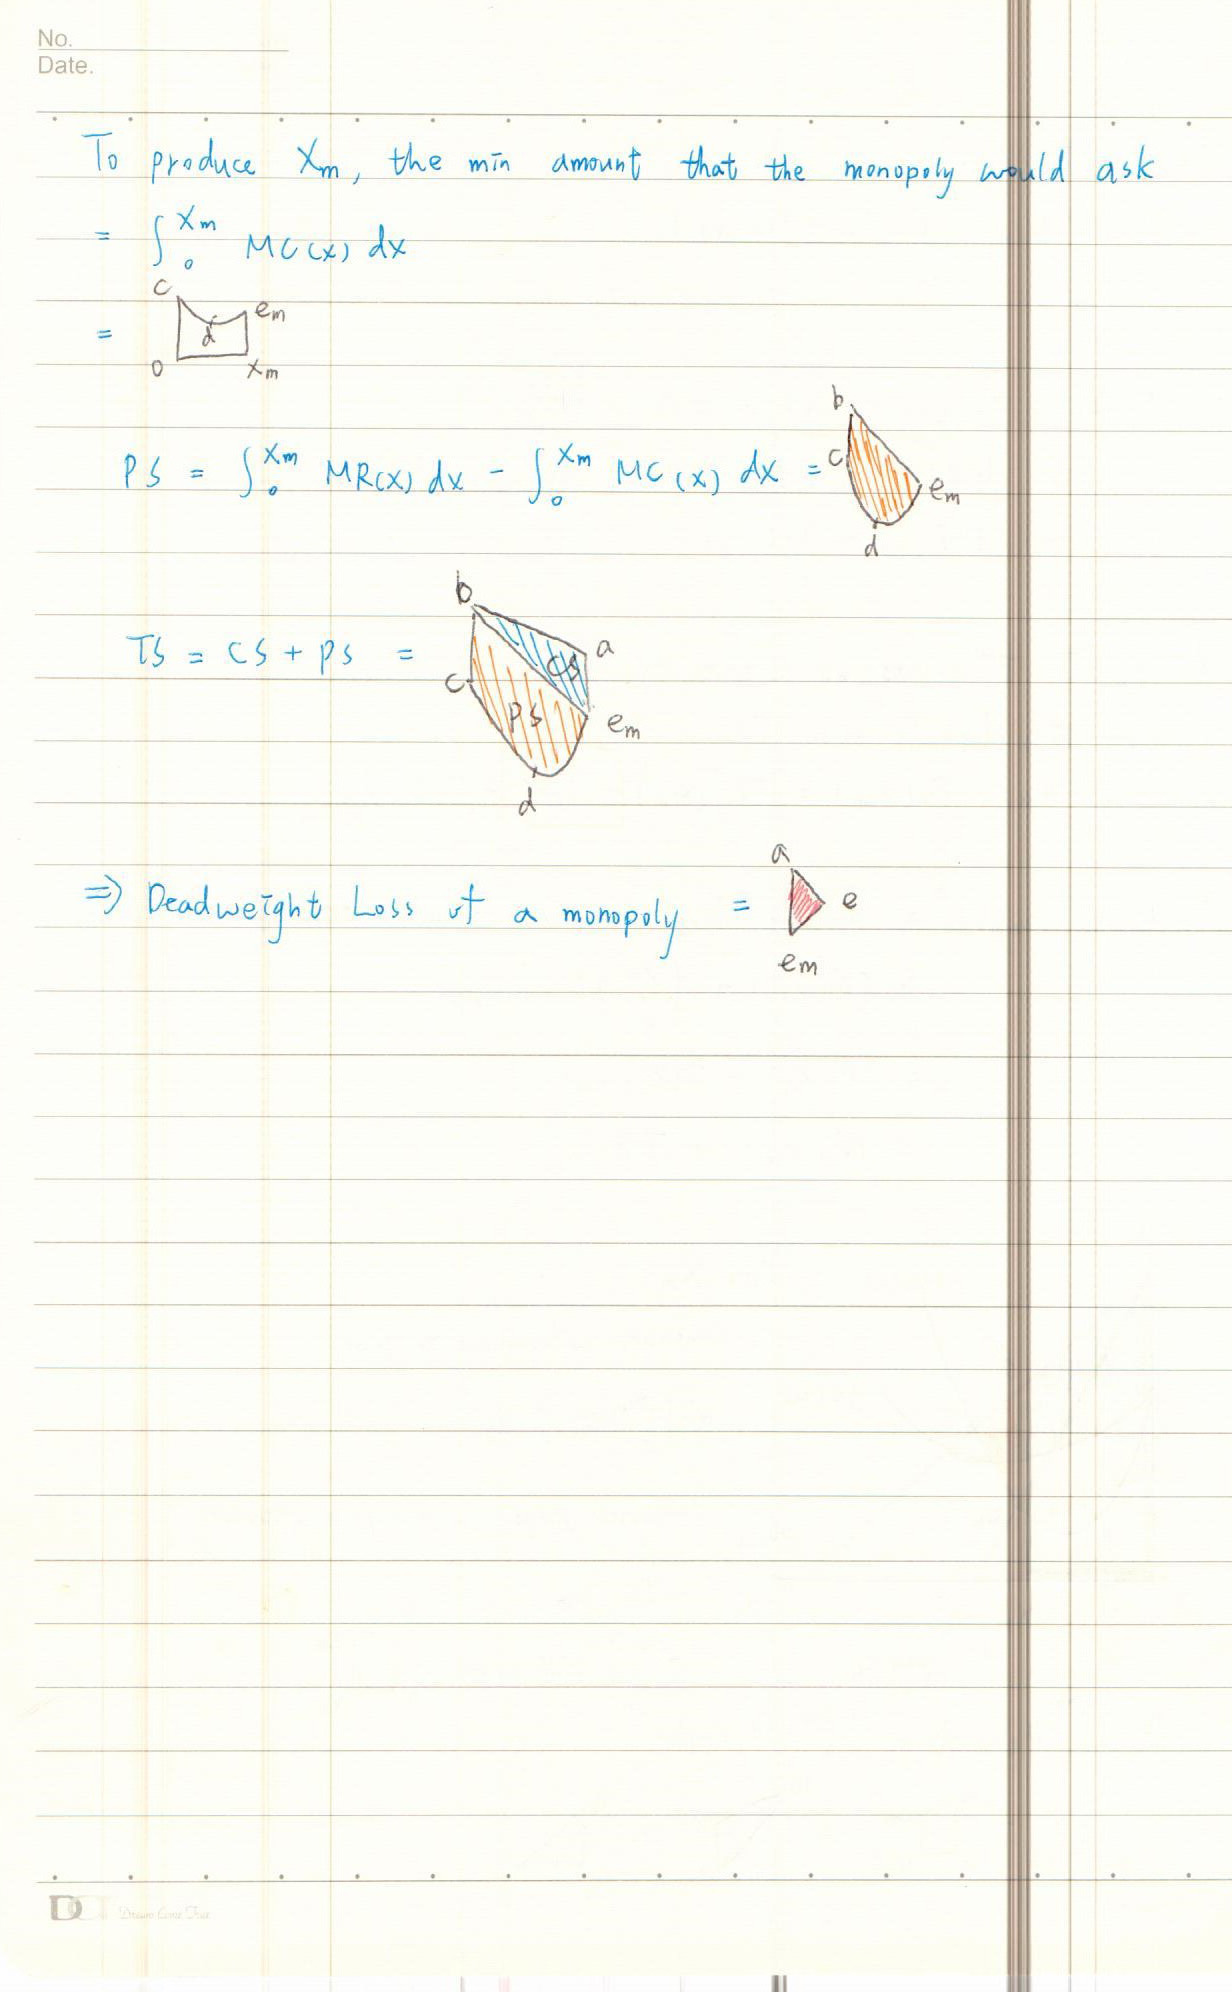 No.
Date.
To produce Xm, the min amount that the monopoly would ask
= ∫₀^Xm MC(x) dx
= c d em o Xm
PS = ∫₀^Xm MR(X) dx - ∫₀^Xm MC(X) dx = b c em d
TS = CS + PS = b a CS c PS em d
⇒ Deadweight Loss of a monopoly = a e em
Dream Come True